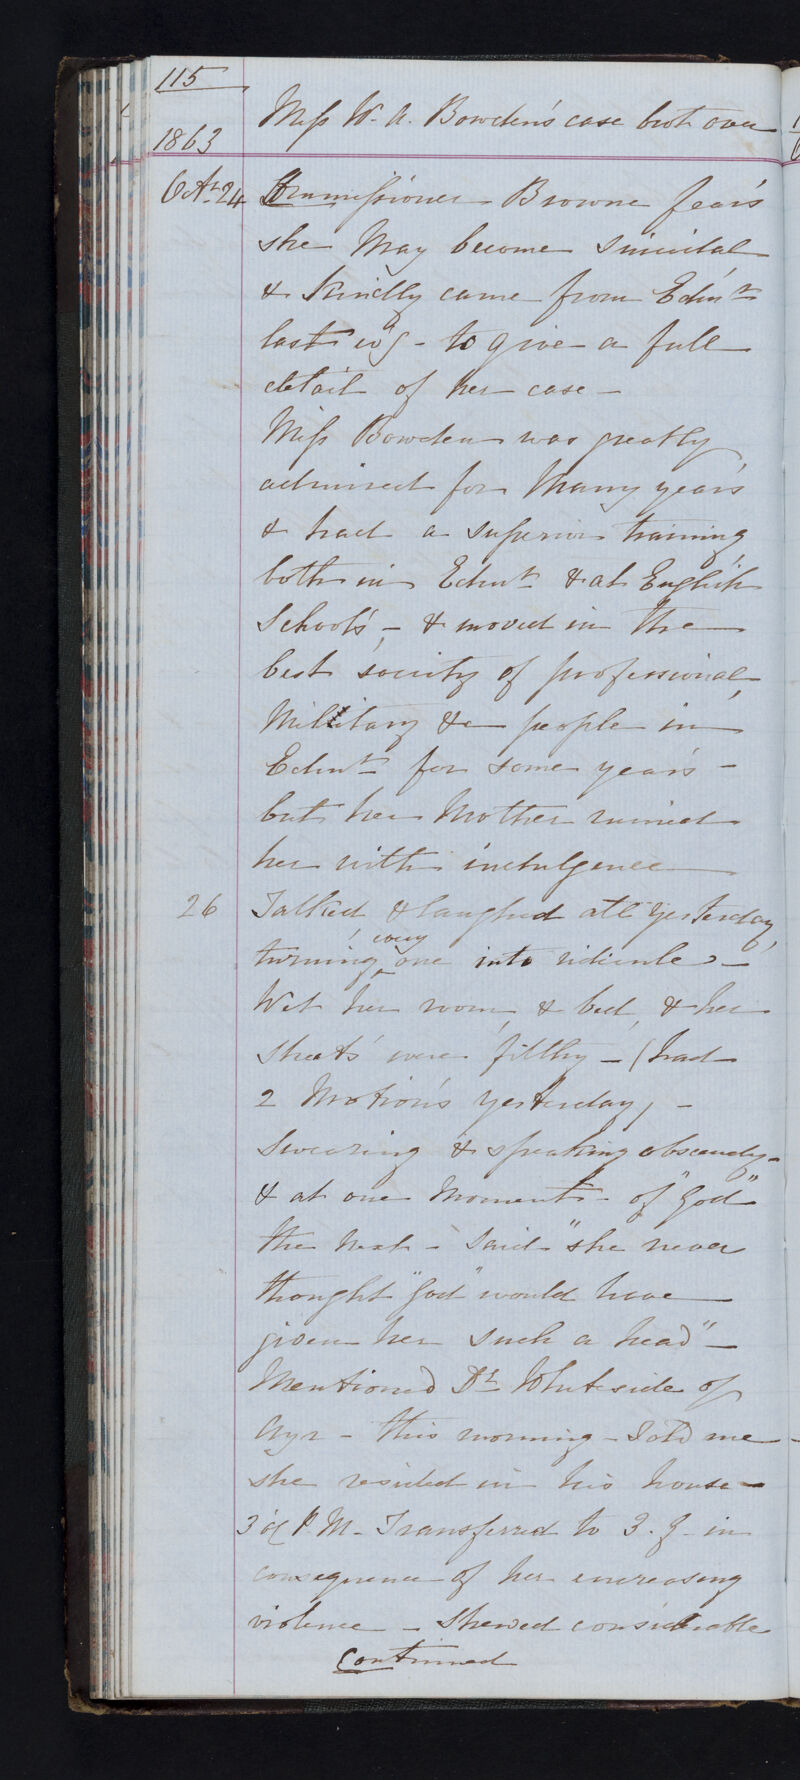 115
Miss W. A. Bowden's case brot over
1863
Octr. 24 Commissioner Browne fears
she may become suicidal
& kindly came from Edinr
last evg - to give a full
detail of her case -
Miss Bowden was greatly
admired for many years
& had a superior training
both in Edinr & at English
Schools - & moved in the
best society of professional,
Military &c people in
Edinr for some years -
but her Mother ruined
her with indulgence
26 Talked & laughed all yesterday,
turning every one into ridicule -
Wet her room, & bed, & her
sheets were filthy - (had
2 Motions yesterday, -
Swearing & speaking obscenely -
& at one moment - of "God"
the next - said "she never
thought "God" would have
given her such a head" -
Mentioned Dr Whiteside of
Ayr - this morning - Told me
she resided in his house -
3 o'c P.M. Transferred to 3. G. in
consequence of her increasing
violence - Shewed considerable
Continued